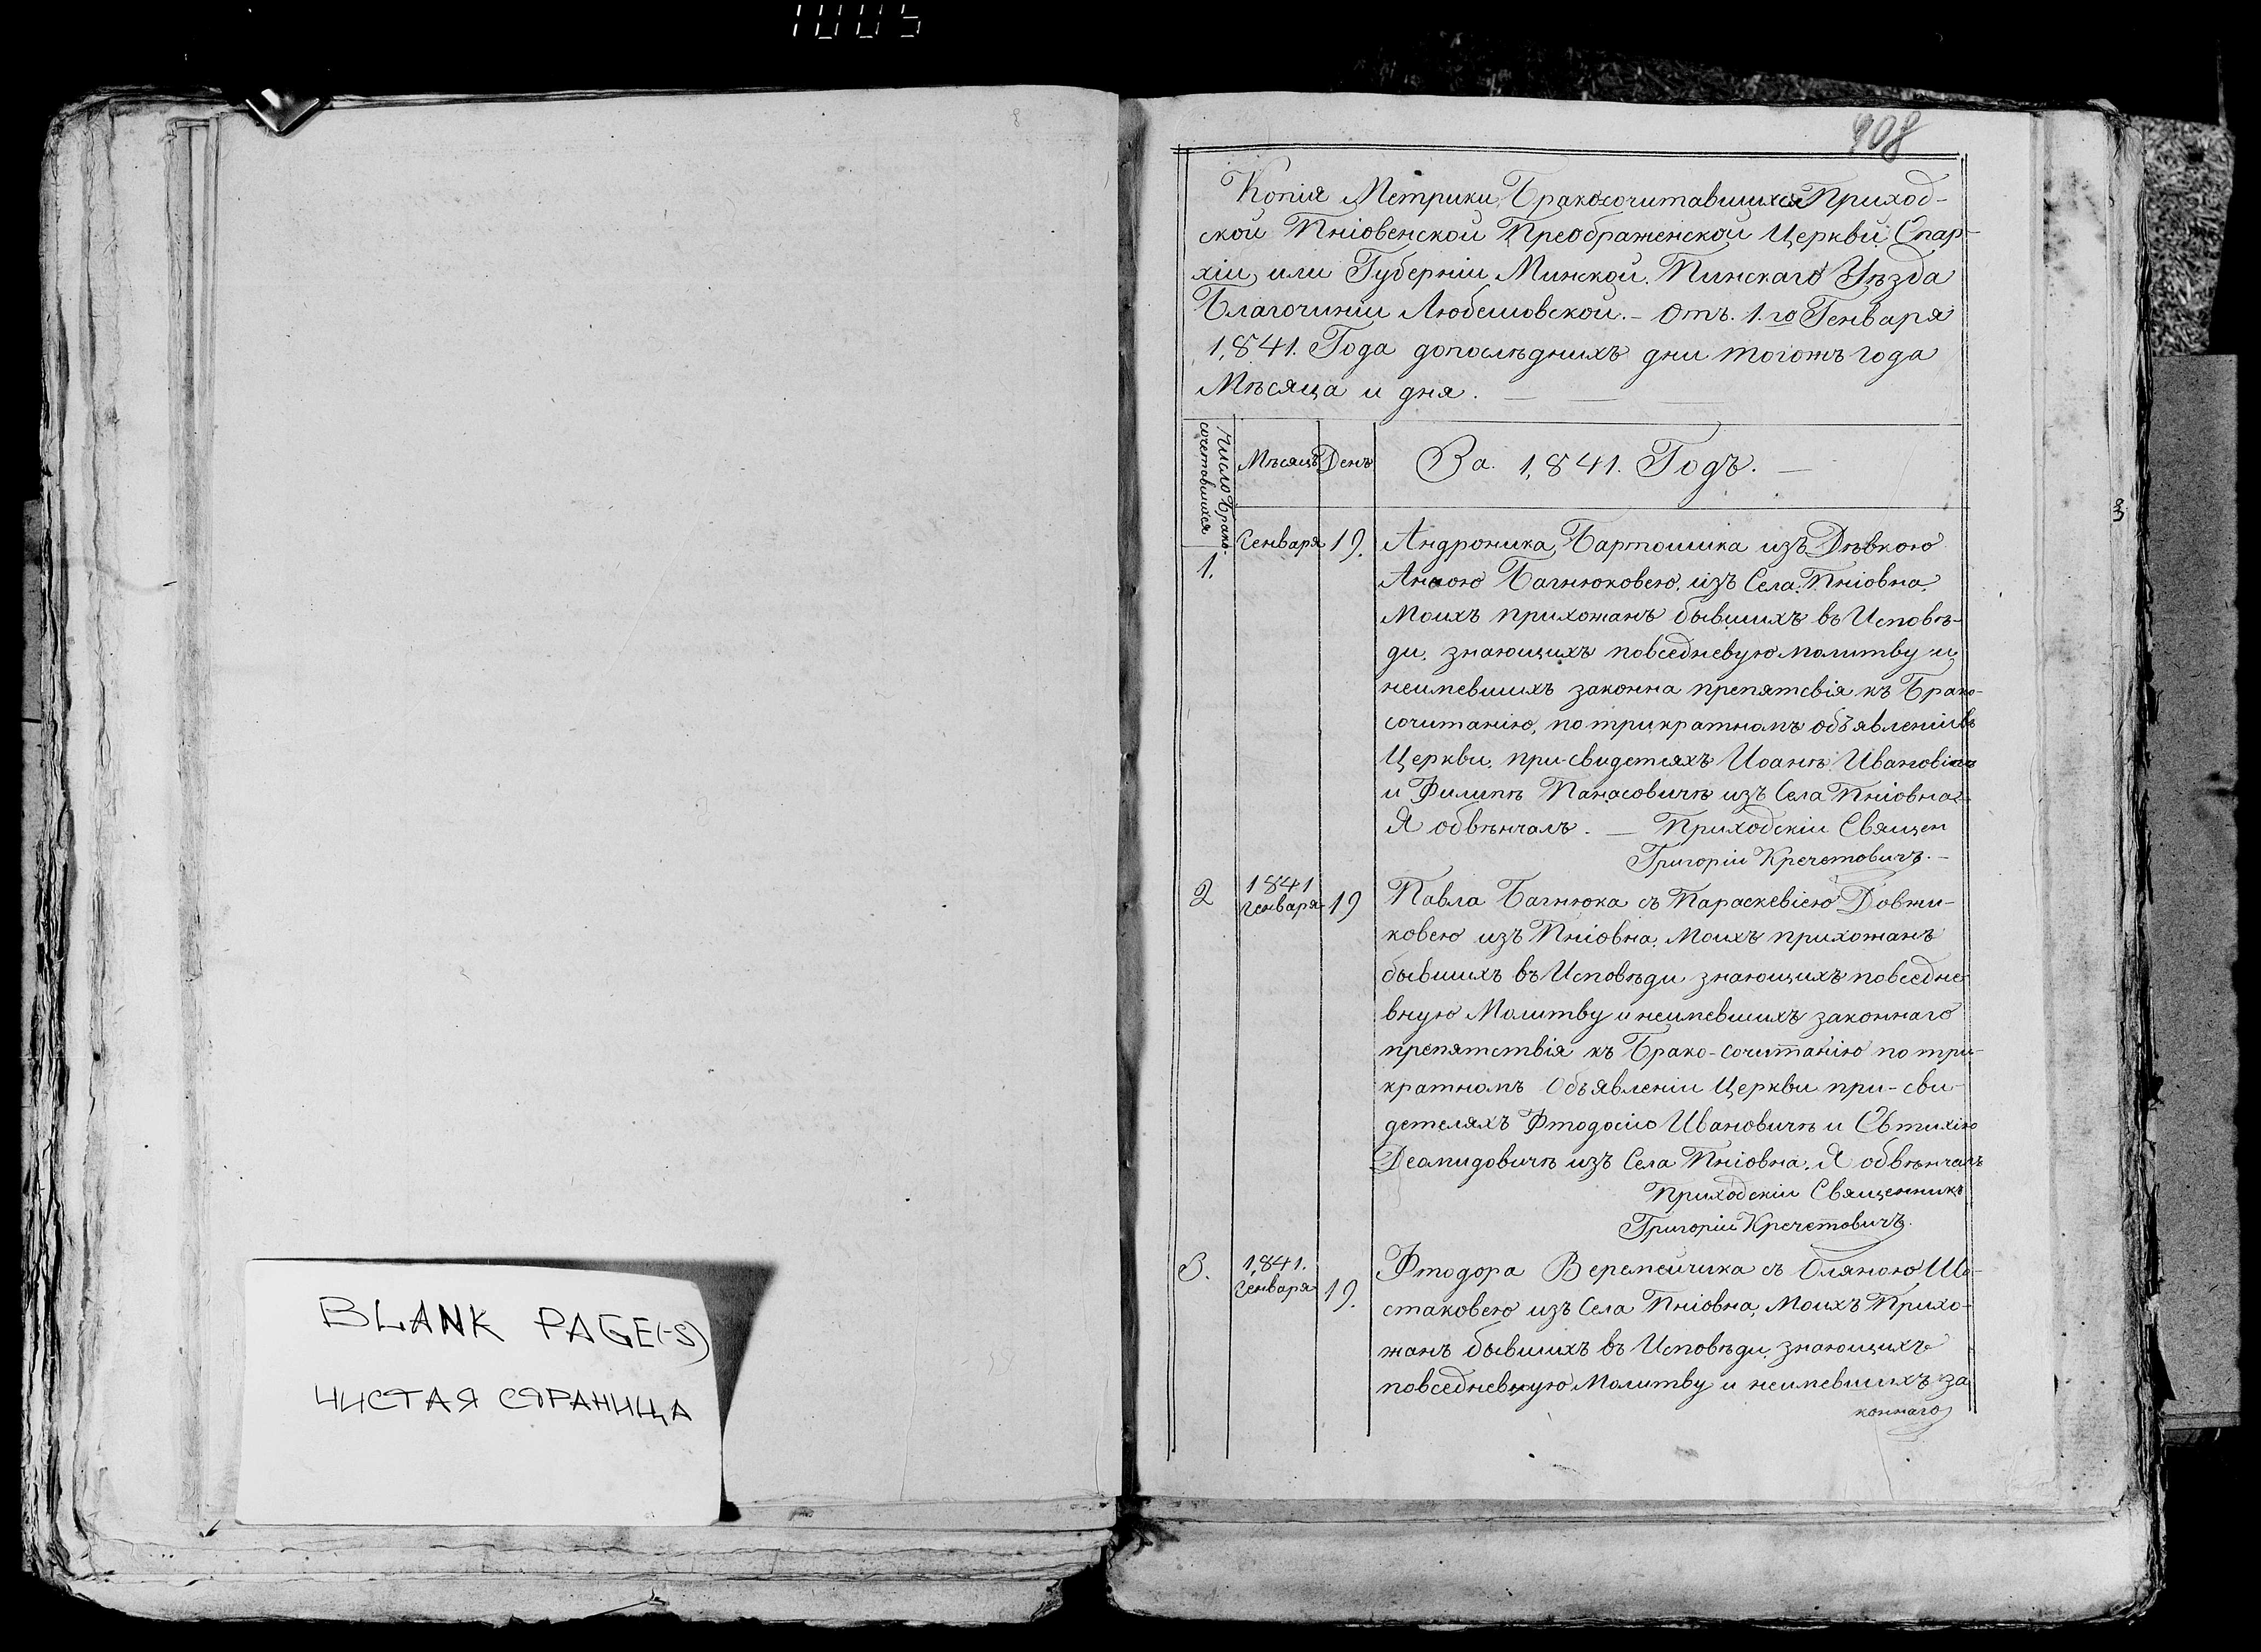 1005
8
908
Копія Метрики Бракосочитавшихся Приход-
ской Пніовенской Преображенской Церкви Епар-
хіи или Губерніи Минской. Пинскаго Уѣзда
Благочиніи Любешовской. – Отъ. 1.го Генваря
1,841. Года допослѣднихъ дни тогожъ года
Мѣсяца и дня. — — —
Число Брако-
сочетовшихся
Мѣсяцъ День За. 1,841. Годъ. —
1. Генваря 19. Андроника Бартошика изъ Дѣвкою
Анною Багнюковею, изъ Села Пніовна,
Моихъ прихожанъ бывшихъ въ Исповѣ-
ди, знающихъ повседневую молитву и
неимевшихъ законна препятсвія къ Брако-
сочитанію, по трикратномъ объявленіи въ
Церкви, при-свидетеяхъ Иоанѣ Ивановичѣ
и Филипѣ Панасовичѣ изъ Села Пніовна
Я обвѣнчалъ. — Приходскіи Священ
Григоріи Кречетовичъ. –
2 1841 Генваря 19 Павла Багнюка съ Параскевіею Довжи-
ковею изъ Пніовна, Моихъ прихожанъ
бывшихъ въ Исповѣди знающихъ повседне-
вную Молитву и неимевшихъ законнаго
препятствія къ Брако-сочитанію по три-
кратномъ Объявленіи Церкви при-сви-
детеляхъ Фтодосію Ивановичѣ и Евтихію
Деомидовичѣ изъ Села Пніовна. Я обвѣнчалъ
Приходскіи Священникъ
Григоріи Кречетовичъ.
3. 1,841. Генваря 19. Фтодора Веремейчика съ Оляною Ше-
стаковею изъ Села Пніовна, Моихъ Прихо-
жанъ бывшихъ въ Исповѣди, знающихъ
повседневную Молитву и неимевшихъ за
коннаго
3
BLANK PAGE(-S)
ЧИСТАЯ СТРАНИЦА